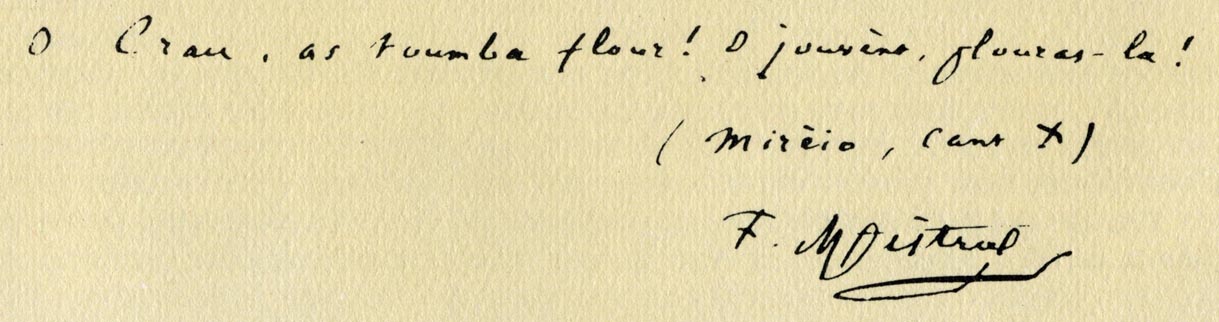 O Crau, as toumba flour! O jouvènt, plouras-la!
(Mirèio, cant X)
F. Mistral